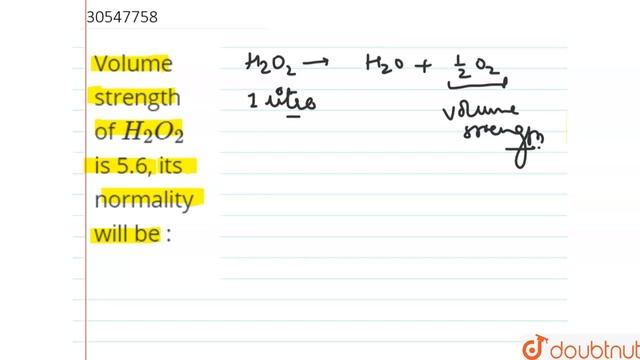 30547758
Volume
strength
of H₂O₂
is 5.6, its
normality
will be :
H₂O₂ → H₂O + ½ O₂
1 litre
volume
strength
doubtnut